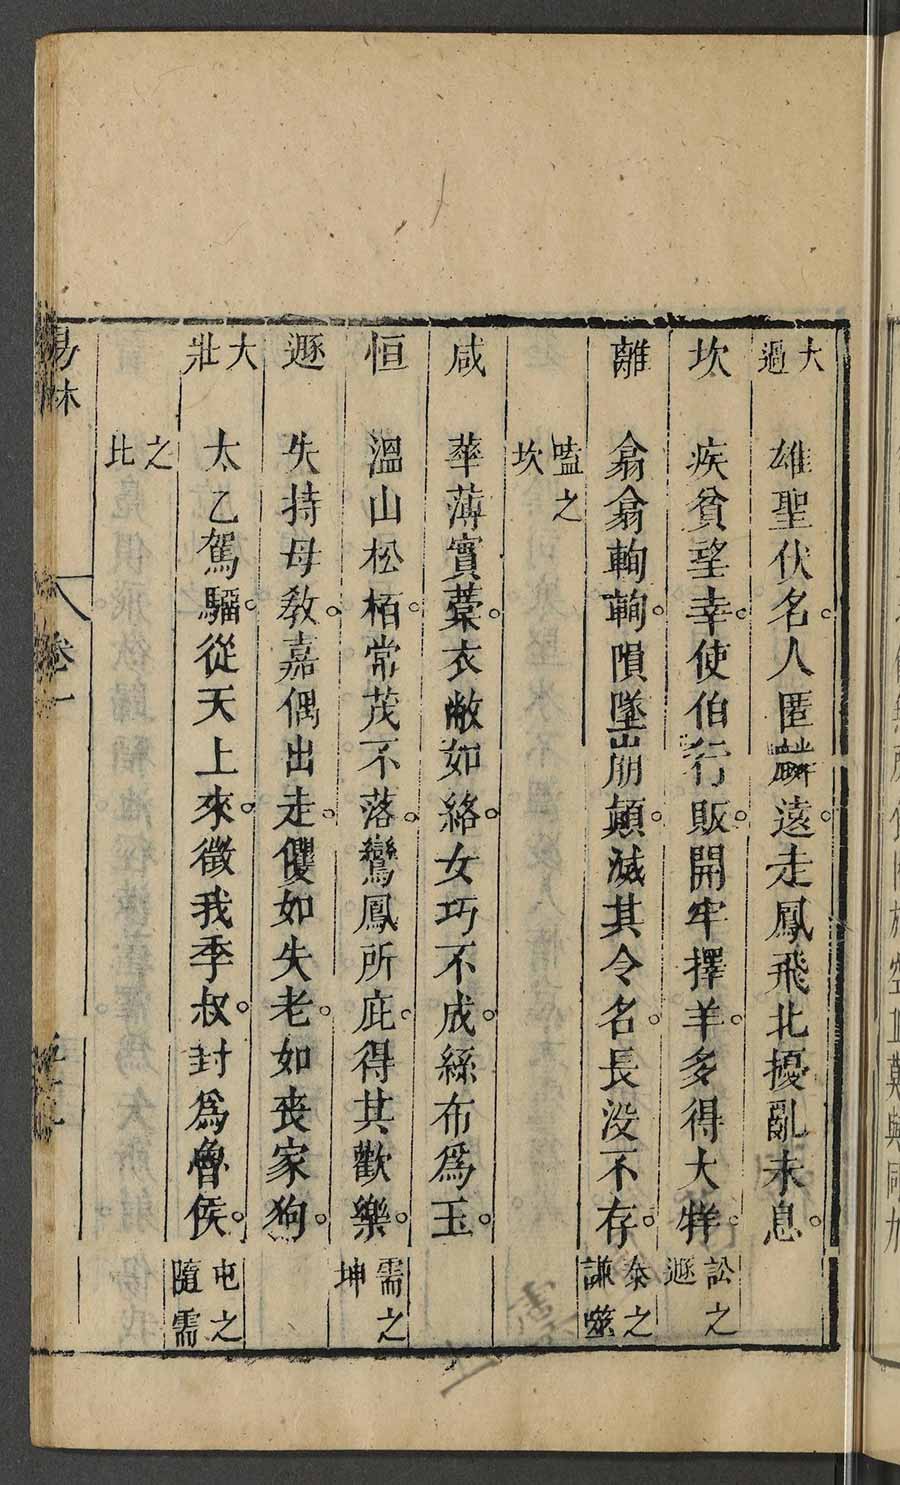 大過　雄聖伏名。人匿麟遠。走鳳飛北擾亂未息。
坎　疾貧望幸。使伯行販。開牢擇羊。多得大牂。訟之遯
離　翕翕䡘䡘。隕墜崩顛。滅其令名。長没不存。泰之謙噬
嗑之坎
咸　華薄實槀。衣敝如絡。女巧不成。絲布為玉。
恒　溫山松栢。常茂不落。鸞鳳所庇。得其歡樂。需之坤
遯　失持母教。嘉偶出走。儍如失老。如喪家狗。
大壯　太乙駕騮。從天上來。徵我季叔。封為魯侯。屯之隨需
之比
易林　卷一